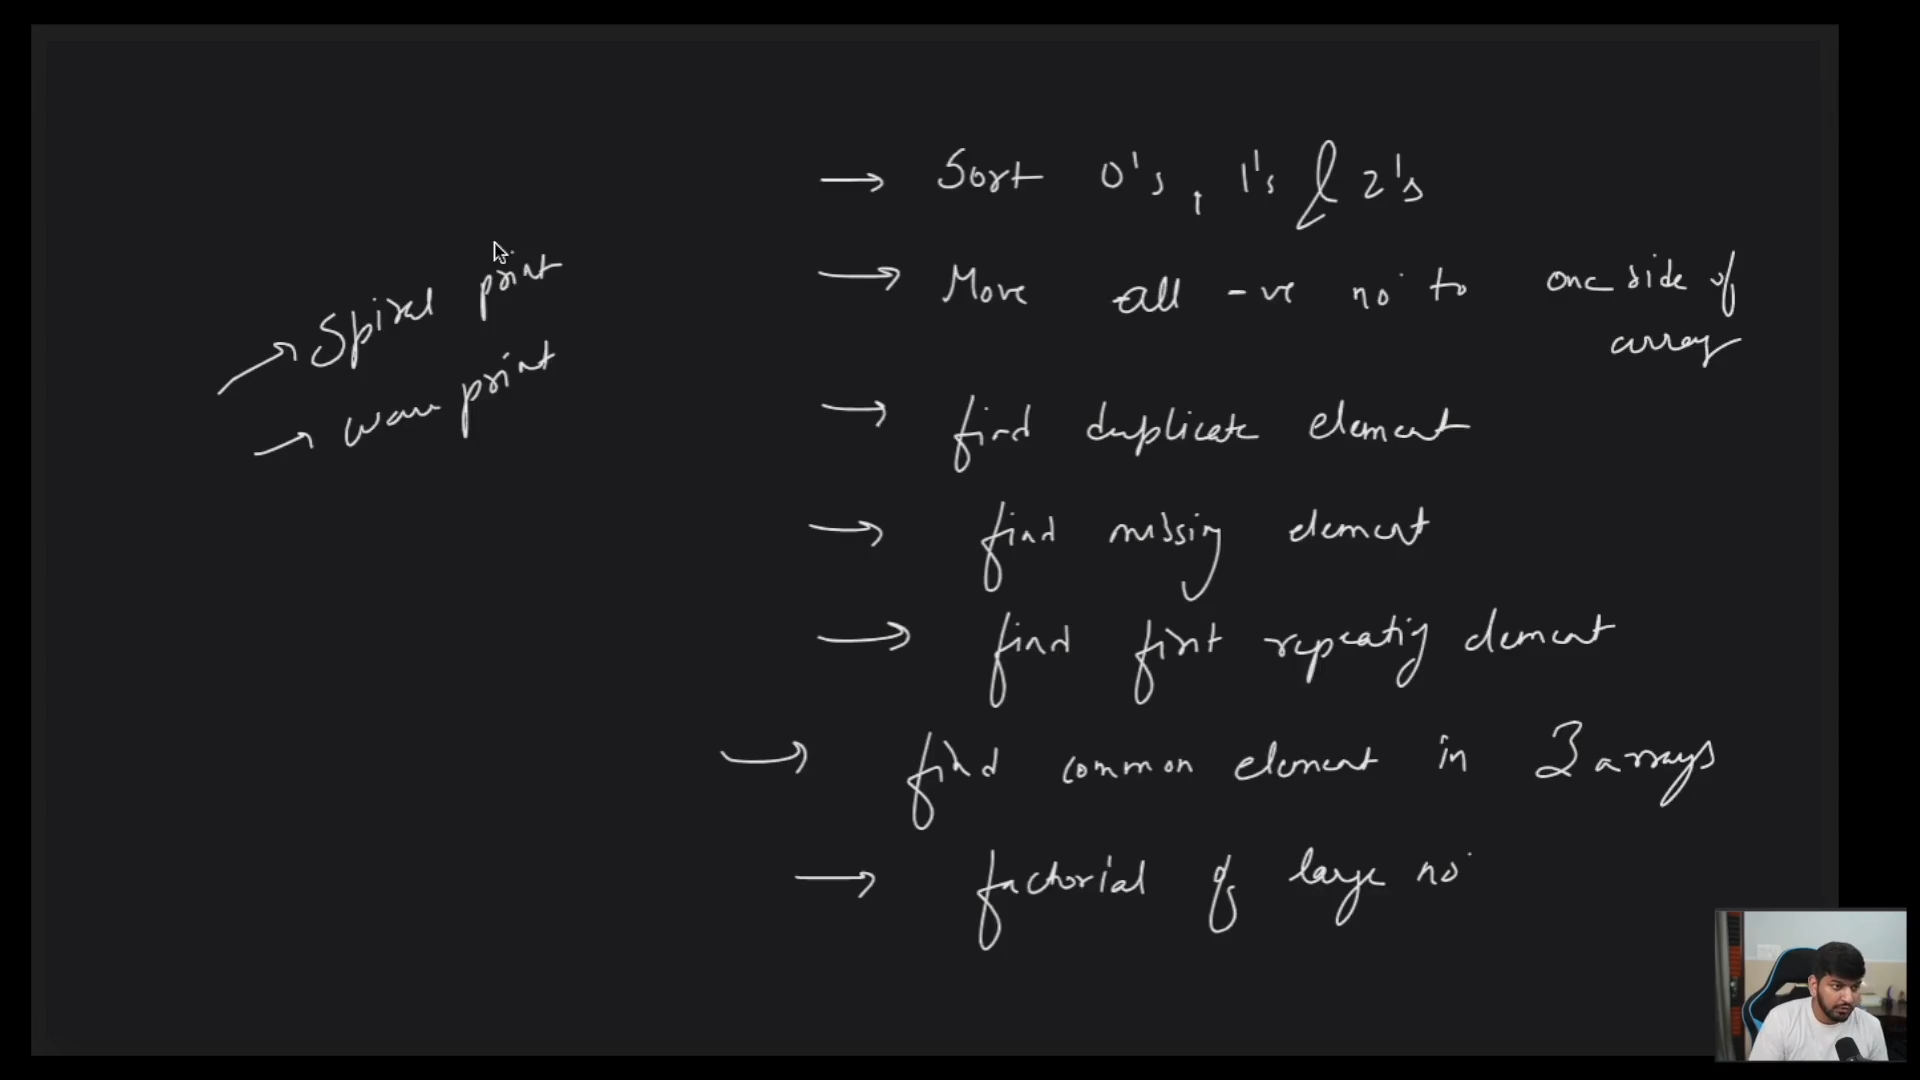 → Spiral print
→ wave print
→ Sort 0's, 1's & 2's
→ Move all -ve no. to one side of
array
→ find duplicate element
→ find missing element
→ find first repeating element
→ find common element in 3 arrays
→ factorial of large no.